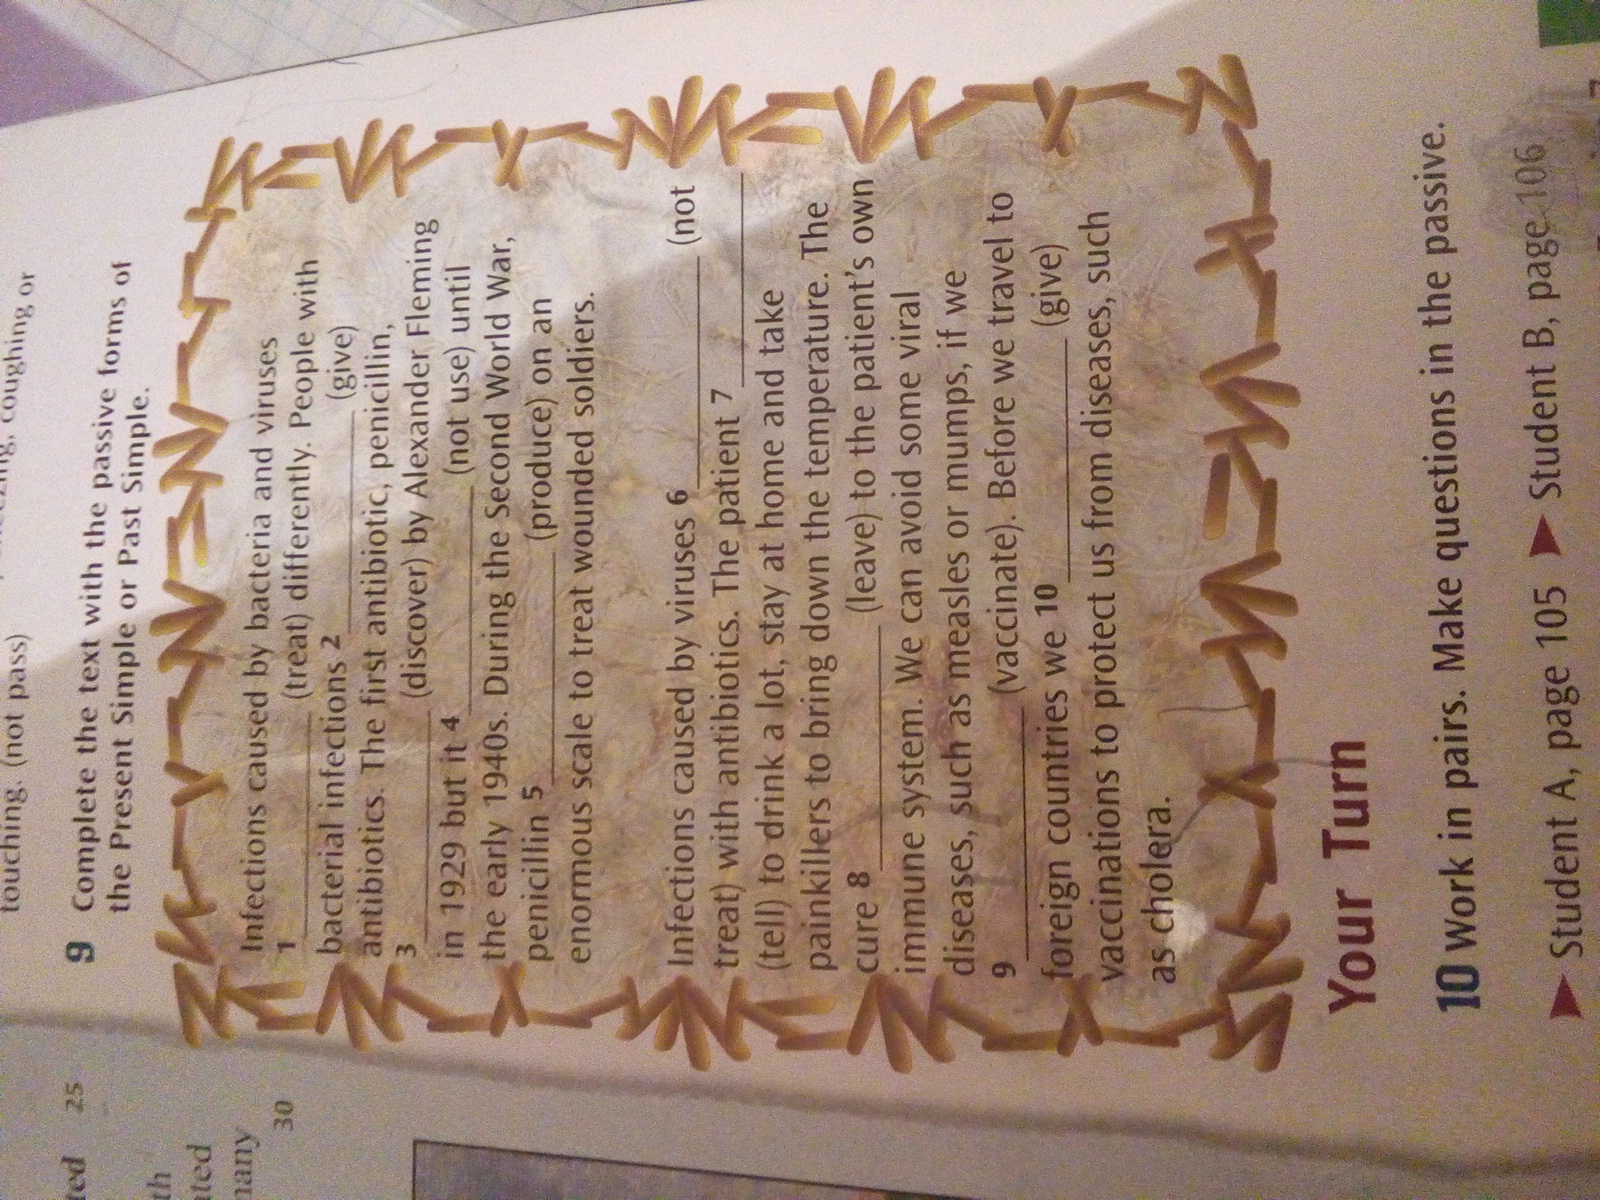 touching. (not pass)
coughing or
9 Complete the text with the passive forms of
the Present Simple or Past Simple.
Infections caused by bacteria and viruses
1 ________ (treat) differently. People with
bacterial infections 2 ________ (give)
antibiotics. The first antibiotic, penicillin,
3 ________ (discover) by Alexander Fleming
in 1929 but it 4 ________ (not use) until
the early 1940s. During the Second World War,
penicillin 5 ________ (produce) on an
enormous scale to treat wounded soldiers.
Infections caused by viruses 6 ________ (not
treat) with antibiotics. The patient 7 ________
(tell) to drink a lot, stay at home and take
painkillers to bring down the temperature. The
cure 8 ________ (leave) to the patient's own
immune system. We can avoid some viral
diseases, such as measles or mumps, if we
9 ________ (vaccinate). Before we travel to
foreign countries we 10 ________ (give)
vaccinations to protect us from diseases, such
as cholera.
Your Turn
10 Work in pairs. Make questions in the passive.
Student A, page 105 Student B, page 106
25
30